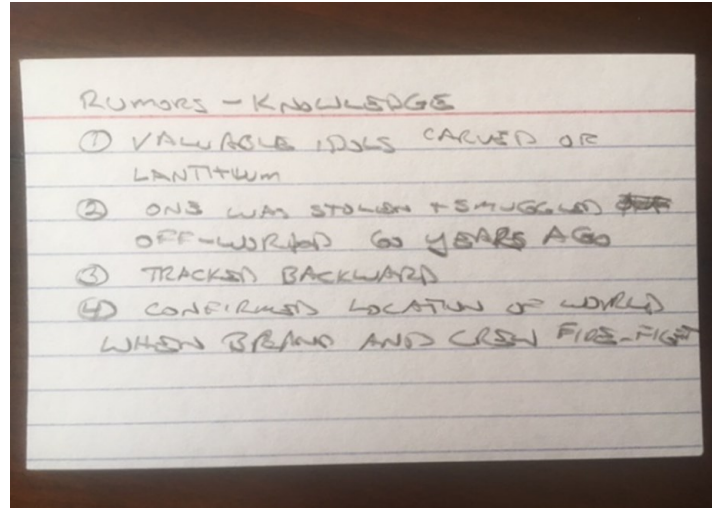 RUMORS - KNOWLEDGE
① VALUABLE IDOLS CARVED OF
LANTITHUM
② ONE WAS STOLEN + SMUGGLED
OFF-WORLD 60 YEARS AGO
③ TRACKED BACKWARD
④ CONFIRMED LOCATION OF WORLD
WHEN BRAND AND CREW FIRE-FIGHT